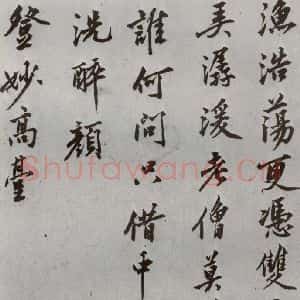 漁浩蕩更憑雙
美潺湲老僧莫
誰何問只借中
洗醉顏
登妙高臺
Shufawang.cn